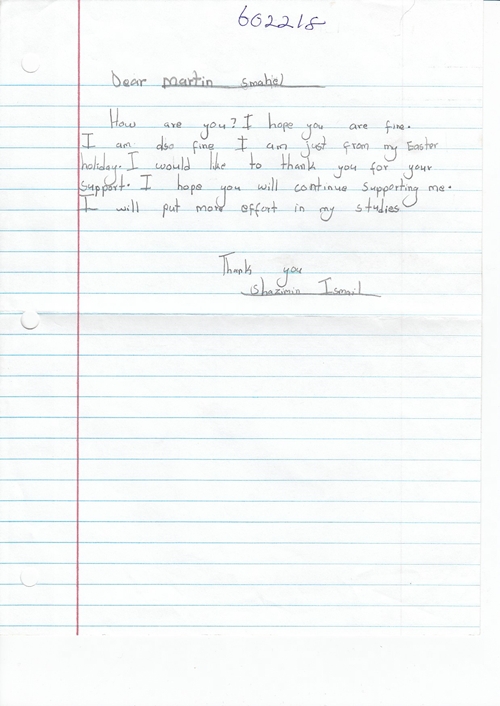 602218
Dear Martin Smahel
How are you? I hope you are fine.
I am also fine I am just from my Easter
holiday. I would like to thank you for your
support. I hope you will continue supporting me.
I will put more effort in my studies
Thank you
Shazimin Ismail